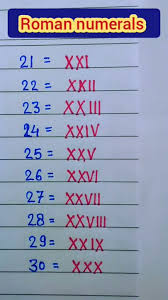 Roman numerals
21 = XXI
22 = XXII
23 = XXIII
24 = XXIV
25 = XXV
26 = XXVI
27 = XXVII
28 = XXVIII
29 = XXIX
30 = XXX